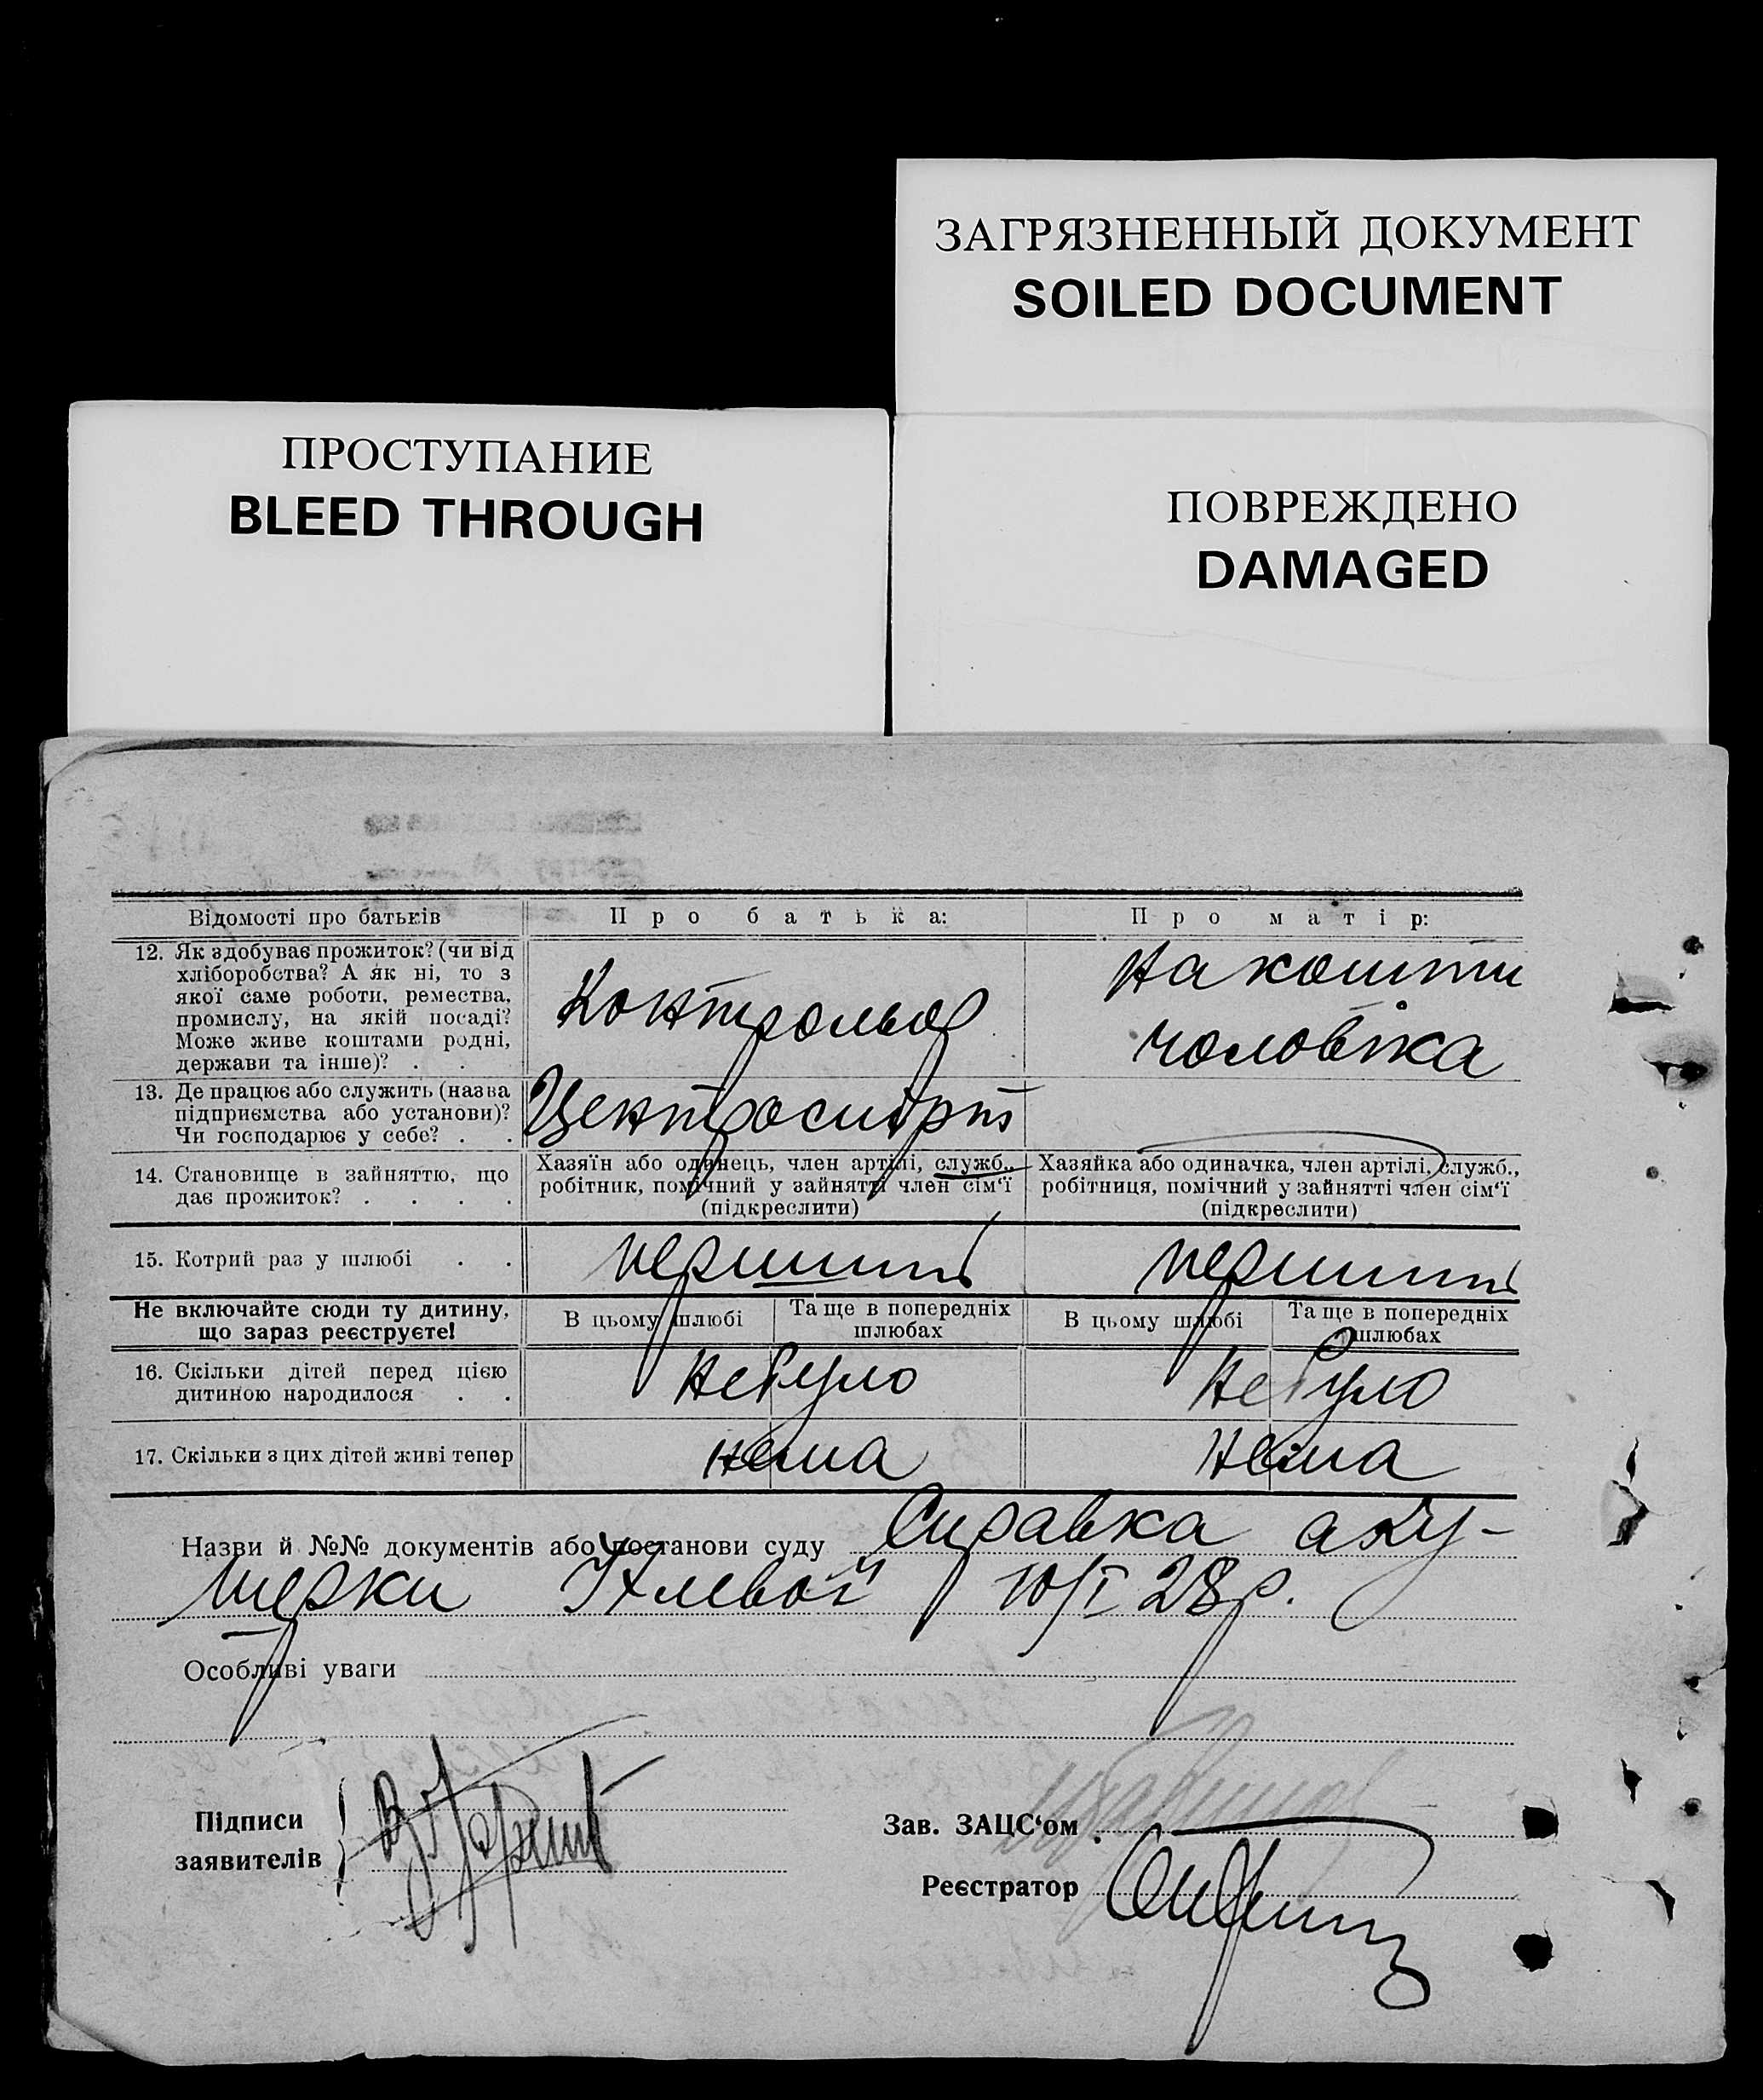 ЗАГРЯЗНЕННЫЙ ДОКУМЕНТ
SOILED DOCUMENT
ПРОСТУПАНИЕ
BLEED THROUGH
ПОВРЕЖДЕНО
DAMAGED
Відомості про батьків
Про батька:
Про матір:
12. Як здобуває прожиток? (чи від
хліборобства? А як ні, то з
якої саме роботи, ремества,
промислу, на якій посаді?
Може живе коштами родні,
держави та інше)? . .
Контрольор
На кошти
чоловіка
13. Де працює або служить (назва
підприємства або установи)?
Чи господарює у себе? . .
Центроспірт
14. Становище в зайняттю, що
дає прожиток? . . . .
Хазяїн або одинець, член артілі, служб.,
робітник, помічний у зайнятті член сім‘ї
(підкреслити)
Хазяйка або одиначка, член артілі, служб.,
робітниця, помічний у зайнятті член сім‘ї
(підкреслити)
15. Котрий раз у шлюбі . .
перший
перший
Не включайте сюди ту дитину,
що зараз реєструєте!
В цьому шлюбі
Та ще в попередніх
шлюбах
В цьому шлюбі
Та ще в попередніх
шлюбах
16. Скільки дітей перед цією
дитиною народилося . .
не було
не було
17. Скільки з цих дітей живі тепер
нема
нема
Назви й №№ документів або постанови суду Справка аку-
шерки 10/I 28 р.
Особливі уваги
Підписи
заявителів
Зав. ЗАЦС‘ом
Реєстратор